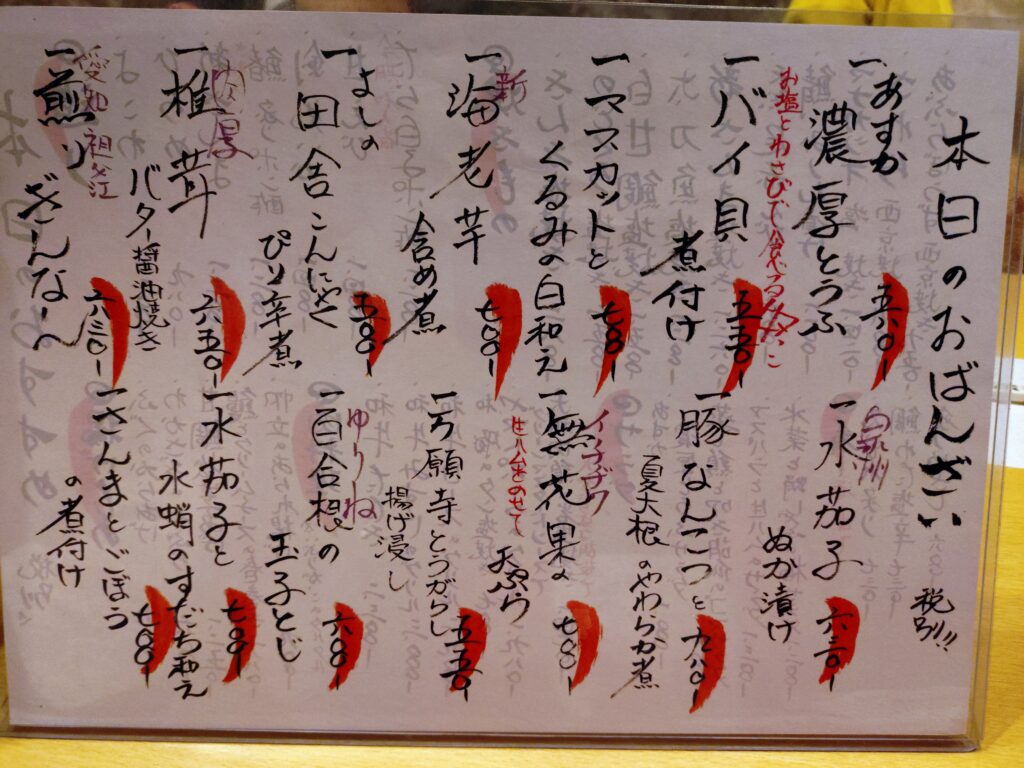 本日のおばんざい
税別!!
一 あすか 濃厚とうふ
五八〇ー
お塩とわさびで食べる
一 バイ貝
煮付け
五五〇ー
一 マスカットと
くるみの白和え
七八〇ー
新
一 海老芋
含め煮
七八〇ー
一 よしの
田舎こんにゃく
ぴり辛煮
五八〇ー
肉厚
一 椎茸
バター醤油焼き
六五〇ー
愛知 祖父江
一 煎りぎんなん
六三〇ー
泉州
一 水茄子
ぬか漬け
六三〇ー
一 豚なんこつと
夏大根のやわらか煮
九八〇ー
イチヂク
一 無花果の
天ぷら
生ハムをのせて
七八〇ー
一 万願寺とうがらし
揚げ浸し
五五〇ー
ゆりね
一 百合根の
玉子とじ
六八〇ー
一 水茄子と
水蛸のすだち和え
七八〇ー
一 さんまとごぼう
の煮付け
七八〇ー